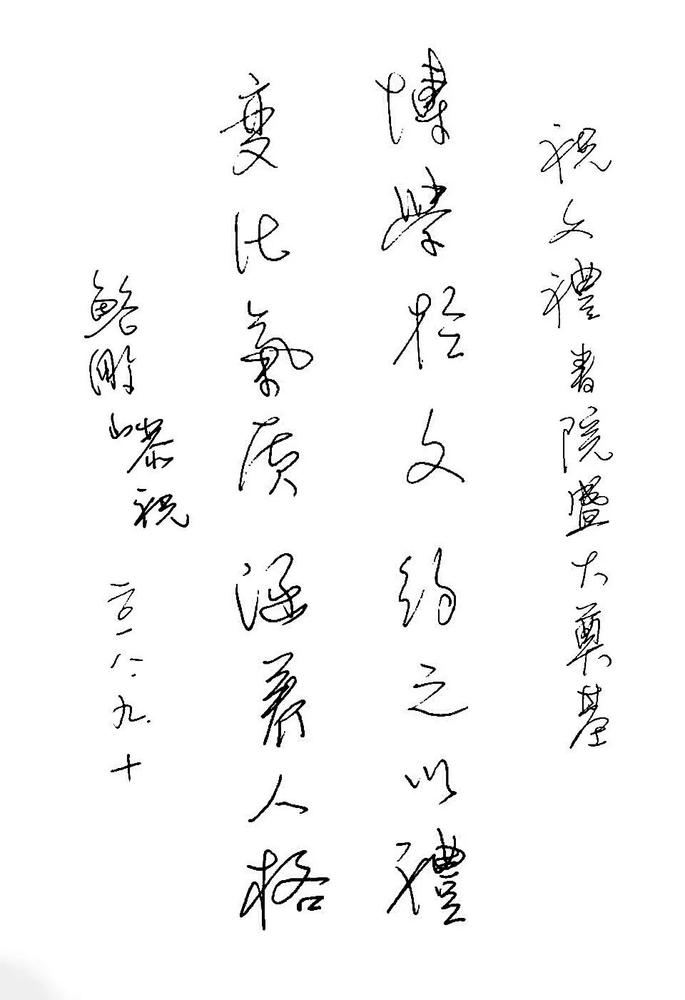 祝文禮書院暨大奠基
博學於文約之以禮
變化氣质涵养人格
鮑鵬山恭祝
二〇一八.九.十